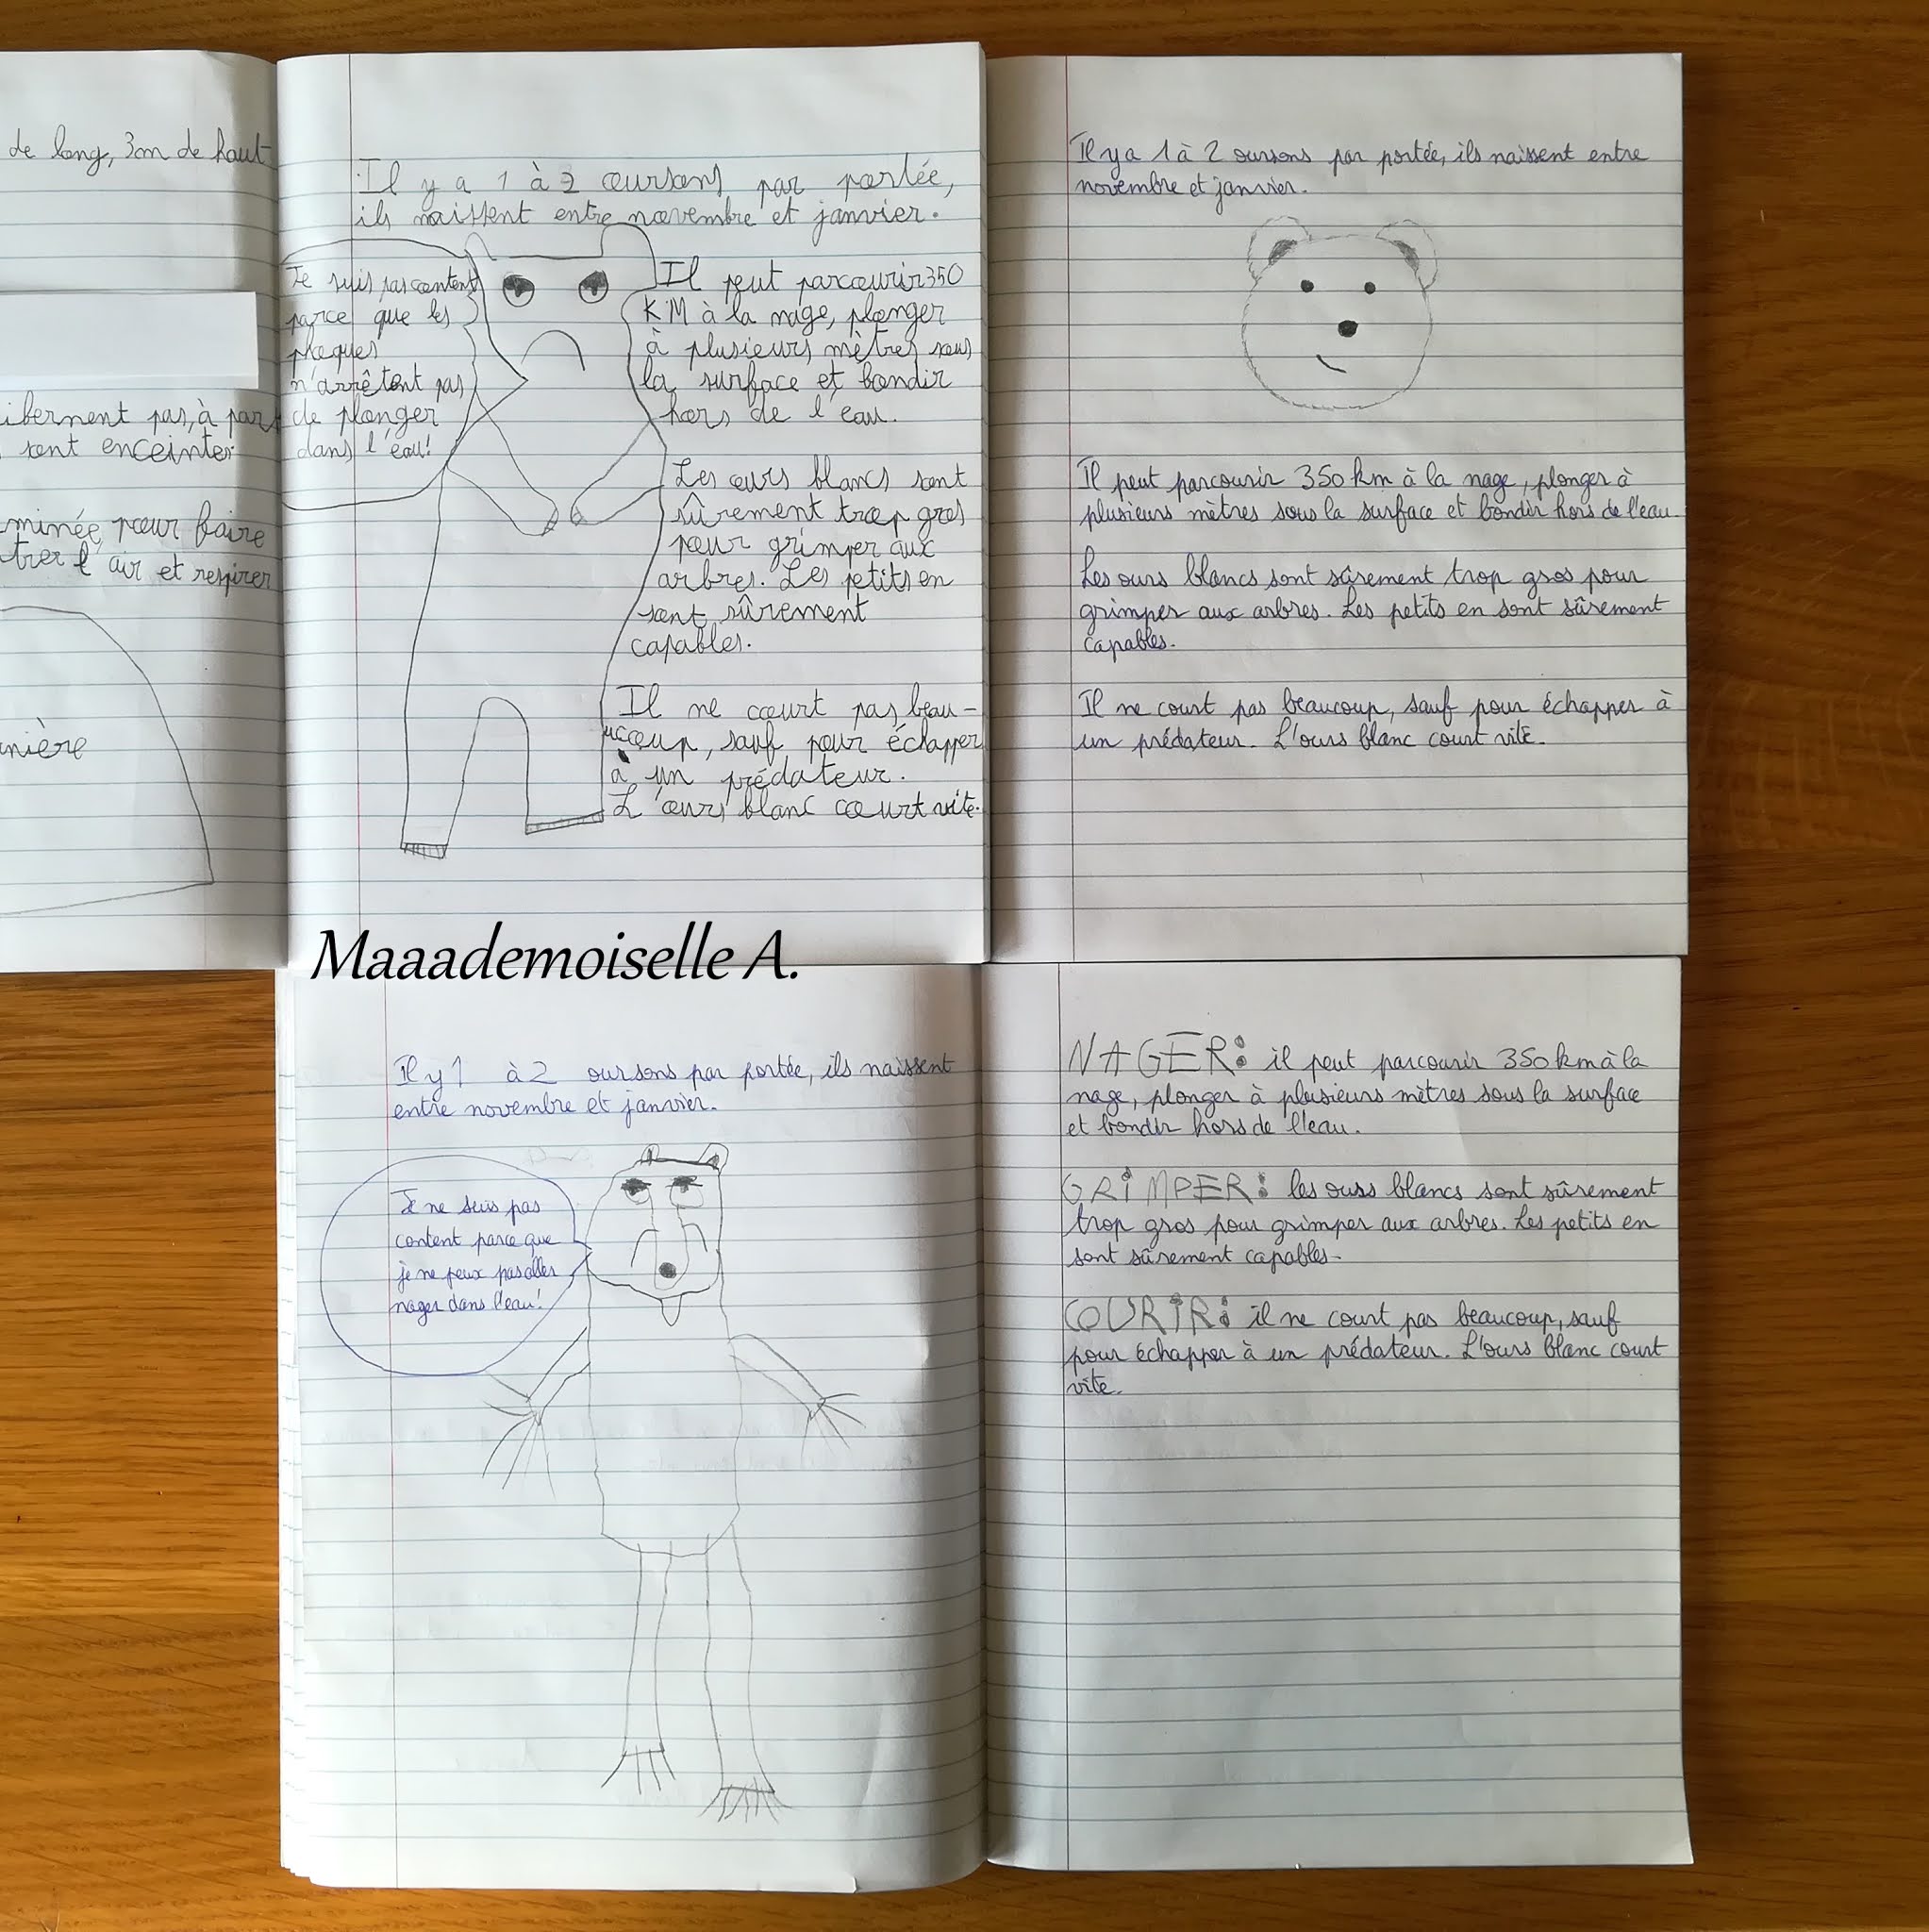 de long, 3m de haut
ibernent pas, à par
sont enceinter
minée pour faire
trer l'air et respirer
nière
Il y a 1 à 2 oursons par portée,
ils naissent entre novembre et janvier.
Je suis pas content
parce que les
phoques
n'arrêtent pas
de plonger
dans l'eau!
Il peut parcourir 350
KM à la nage, plonger
à plusieurs mètres sous
la surface et bondir
hors de l'eau.
Les ours blancs sont
sûrement trop gros
pour grimper aux
arbres. Les petits en
sont sûrement
capables.
Il ne court pas beau-
ucoup, sauf pour échapper
à un prédateur.
L'ours blanc court vite.
Il y a 1 à 2 oursons par portée, ils naissent entre
novembre et janvier.
Il peut parcourir 350 km à la nage, plonger à
plusieurs mètres sous la surface et bondir hors de l'eau
Les ours blancs sont sûrement trop gros pour
grimper aux arbres. Les petits en sont sûrement
capables.
Il ne court pas beaucoup, sauf pour échapper à
un prédateur. L'ours blanc court vite.
Maaademoiselle A.
Il y 1 à 2 oursons par portée, ils naissent
entre novembre et janvier.
Je ne suis pas
content parce que
je ne peux pas aller
nager dans l'eau!
NAGER: il peut parcourir 350 km à la
nage, plonger à plusieurs mètres sous la surface
et bondir hors de l'eau.
GRiMPER: les ours blancs sont sûrement
trop gros pour grimper aux arbres. Les petits en
sont sûrement capables.
COURiR: il ne court pas beaucoup, sauf
pour échapper à un prédateur. L'ours blanc court
vite.